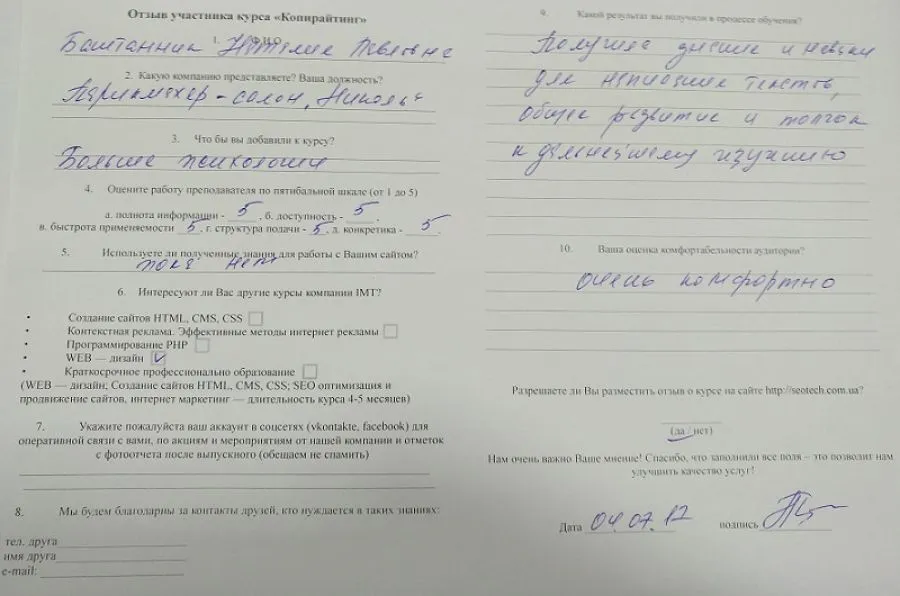 Отзыв участника курса «Копирайтинг»
1. Ф.И.О.
Баштанник Наталия Павловна
2. Какую компанию представляете? Ваша должность?
Парикмахер-салон „Николь“
3. Что бы вы добавили к курсу?
Больше психологии
4. Оцените работу преподавателя по пятибальной шкале (от 1 до 5)
а. полнота информации - 5, б. доступность - 5,
в. быстрота применяемости 5, г. структура подачи - 5, д. конкретика - 5.
5. Используете ли полученные знания для работы с Вашим сайтом?
пока нет
6. Интересуют ли Вас другие курсы компании IMT?
• Создание сайтов HTML, CMS, CSS
• Контекстная реклама. Эффективные методы интернет рекламы
• Программирование PHP
• WEB — дизайн V
• Краткосрочное профессионально образование
(WEB — дизайн; Создание сайтов HTML, CMS, CSS; SEO оптимизация и
продвижение сайтов, интернет маркетинг — длительность курса 4-5 месяцев)
7. Укажите пожалуйста ваш аккаунт в соцсетях (vkontakte, facebook) для
оперативной связи с вами, по акциям и мероприятиям от нашей компании и отметок
с фотоотчета после выпускного (обещаем не спамить)
8. Мы будем благодарны за контакты друзей, кто нуждается в таких знаниях:
тел. друга
имя друга
e-mail:
9. Какой результат вы получили в процессе обучения?
Получила знания и навыки
для написания текстов,
общее развитие и толчок
к дальнейшему изучению
10. Ваша оценка комфортабельности аудитории?
очень комфортно
Разрешаете ли Вы разместить отзыв о курсе на сайте http://seotech.com.ua?
(да / нет)
Нам очень важно Ваше мнение! Спасибо, что заполнили все поля – это позволит нам
улучшить качество услуг!
Дата 04.07.12 подпись